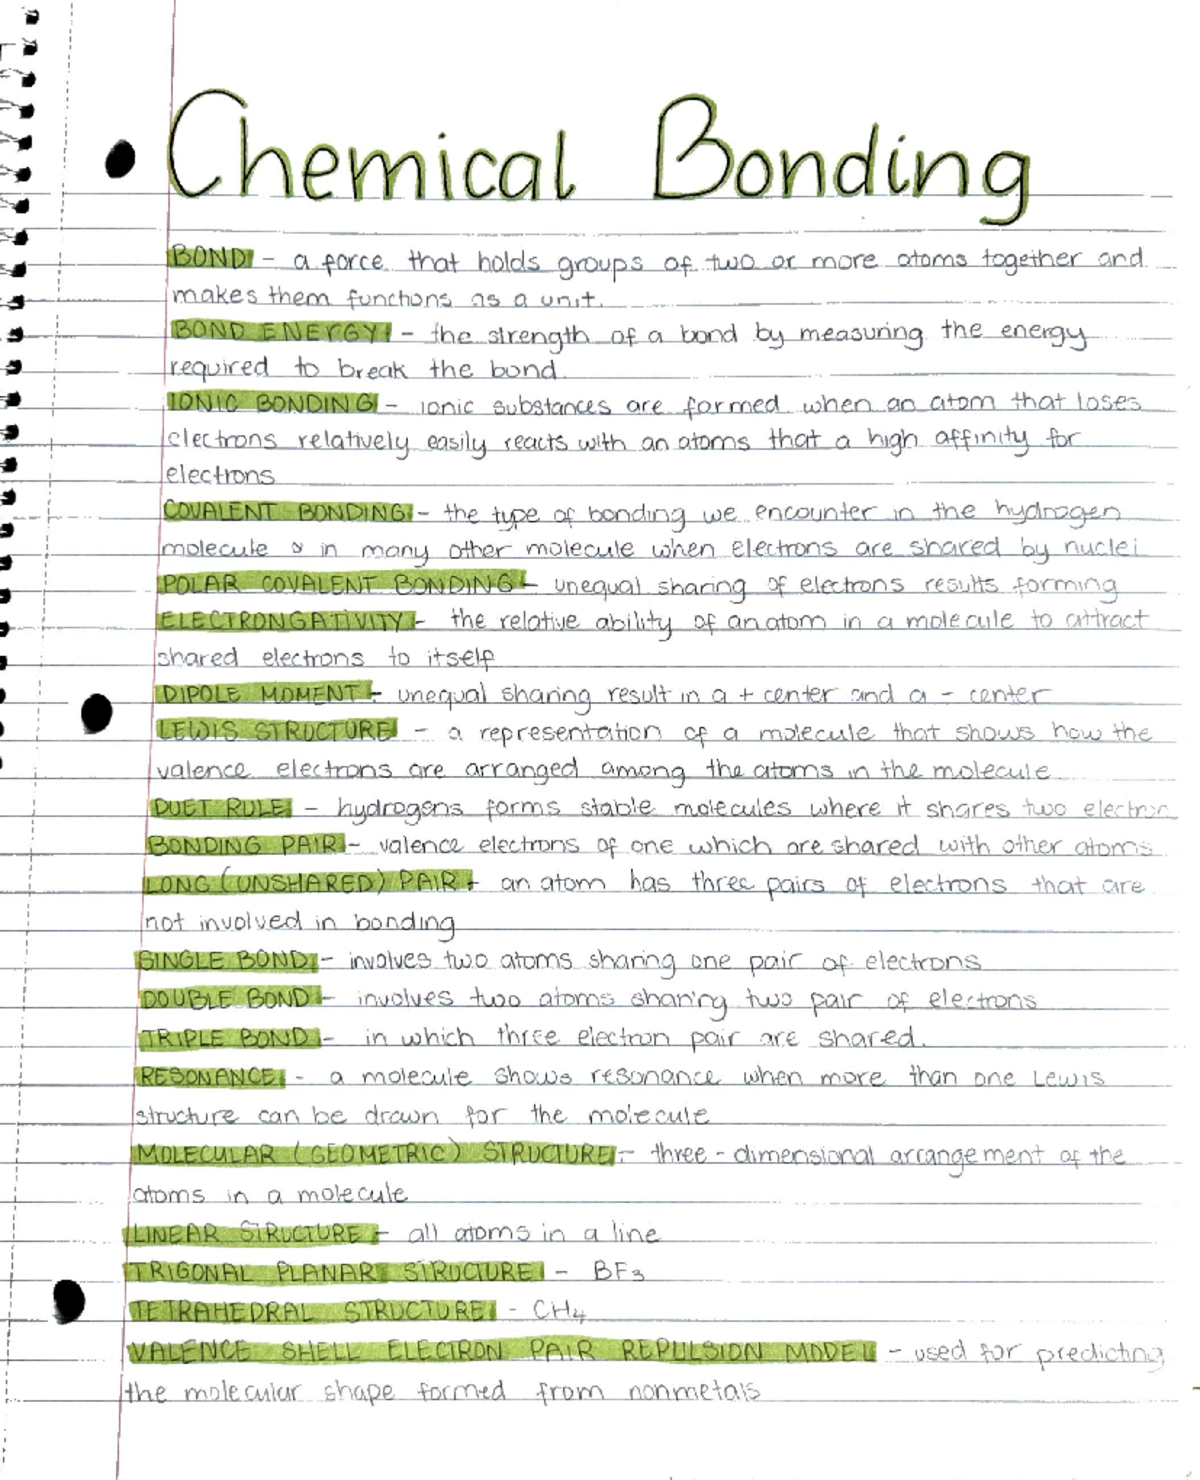 Chemical Bonding
BOND - a force that holds groups of two or more atoms together and
makes them functions as a unit.
BOND ENERGY - the strength of a bond by measuring the energy
required to break the bond.
IONIC BONDING - ionic substances are formed when an atom that loses
electrons relatively easily reacts with an atoms that a high affinity for
electrons
COVALENT BONDING - the type of bonding we encounter in the hydrogen
molecule & in many other molecule when electrons are shared by nuclei
POLAR COVALENT BONDING - unequal sharing of electrons results forming
ELECTRONGATIVITY - the relative ability of an atom in a molecule to attract
shared electrons to itself
DIPOLE MOMENT - unequal sharing result in a + center and a - center
LEWIS STRUCTURE - a representation of a molecule that shows how the
valence electrons are arranged among the atoms in the molecule
DUET RULE - hydrogens forms stable molecules where it shares two electron
BONDING PAIR - valence electrons of one which are shared with other atoms
LONG (UNSHARED) PAIR - an atom has three pairs of electrons that are
not involved in bonding
SINGLE BOND - involves two atoms sharing one pair of electrons
DOUBLE BOND - involves two atoms sharing two pair of electrons
TRIPLE BOND - in which three electron pair are shared.
RESONANCE - a molecule shows resonance when more than one Lewis
structure can be drawn for the molecule
MOLECULAR (GEOMETRIC) STRUCTURE - three-dimensional arrangement of the
atoms in a molecule
LINEAR STRUCTURE - all atoms in a line
TRIGONAL PLANAR STRUCTURE - BF₃
TETRAHEDRAL STRUCTURE - CH₄
VALENCE SHELL ELECTRON PAIR REPULSION MODEL - used for predicting
the molecular shape formed from nonmetals